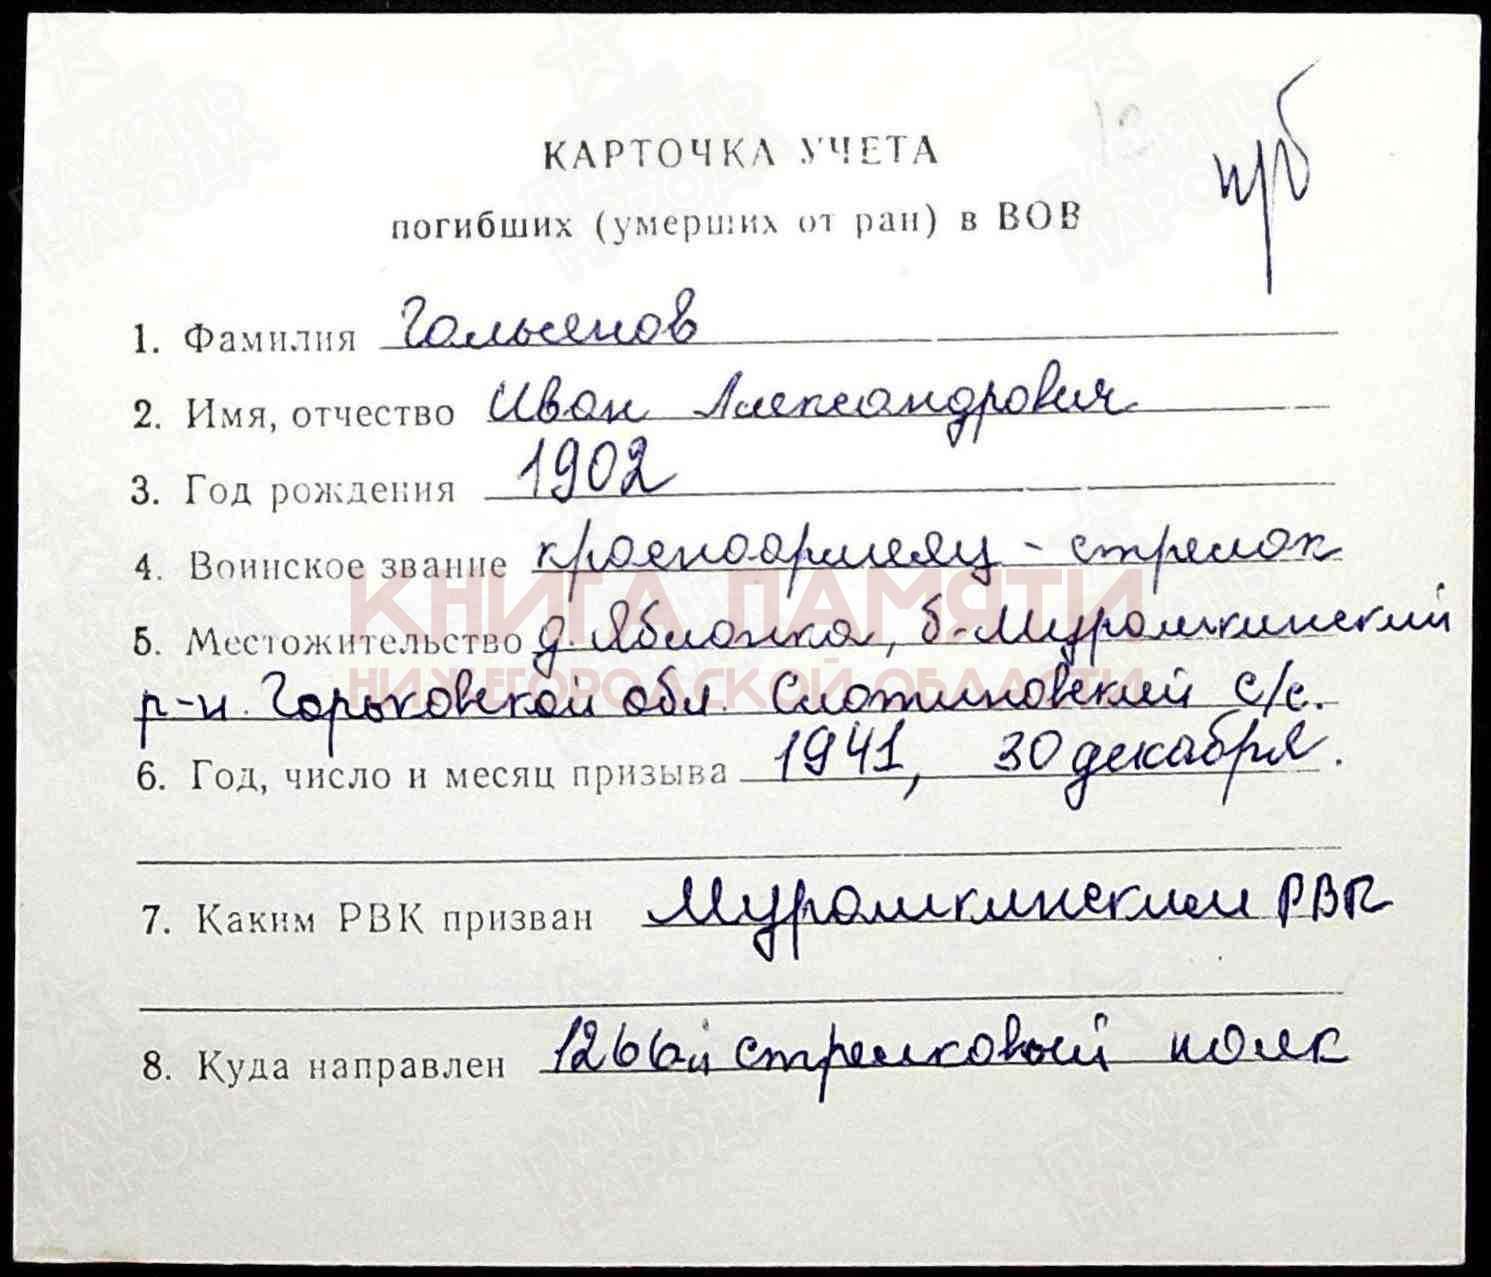 КАРТОЧКА УЧЕТА
погибших (умерших от ран) в ВОВ
1. Фамилия Гольсенов
2. Имя, отчество Иван Александрович
3. Год рождения 1902
4. Воинское звание красноармеец - стрелок
5. Местожительство д. Яблонка, б-Мурашкинский
р-н. Горьковской обл. Слотиновский с/с.
6. Год, число и месяц призыва 1941, 30 декабря.
7. Каким РВК призван Мурашкинским РВК
8. Куда направлен 1266й стрелковый полк
КНИГА ПАМЯТИ
НИЖЕГОРОДСКОЙ ОБЛАСТИ
ПАМЯТЬ
НАРОДА